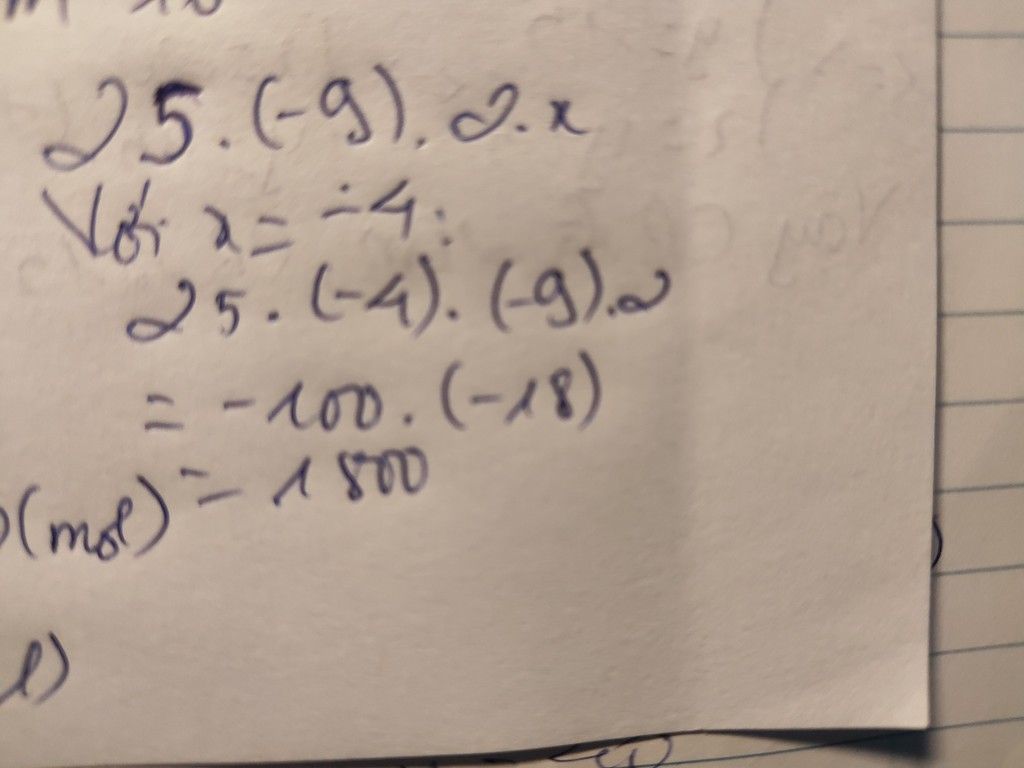 25.(-9).2.x
Với x = -4:
25.(-4).(-9).2
= -100.(-18)
= 1800
(mol)
l)